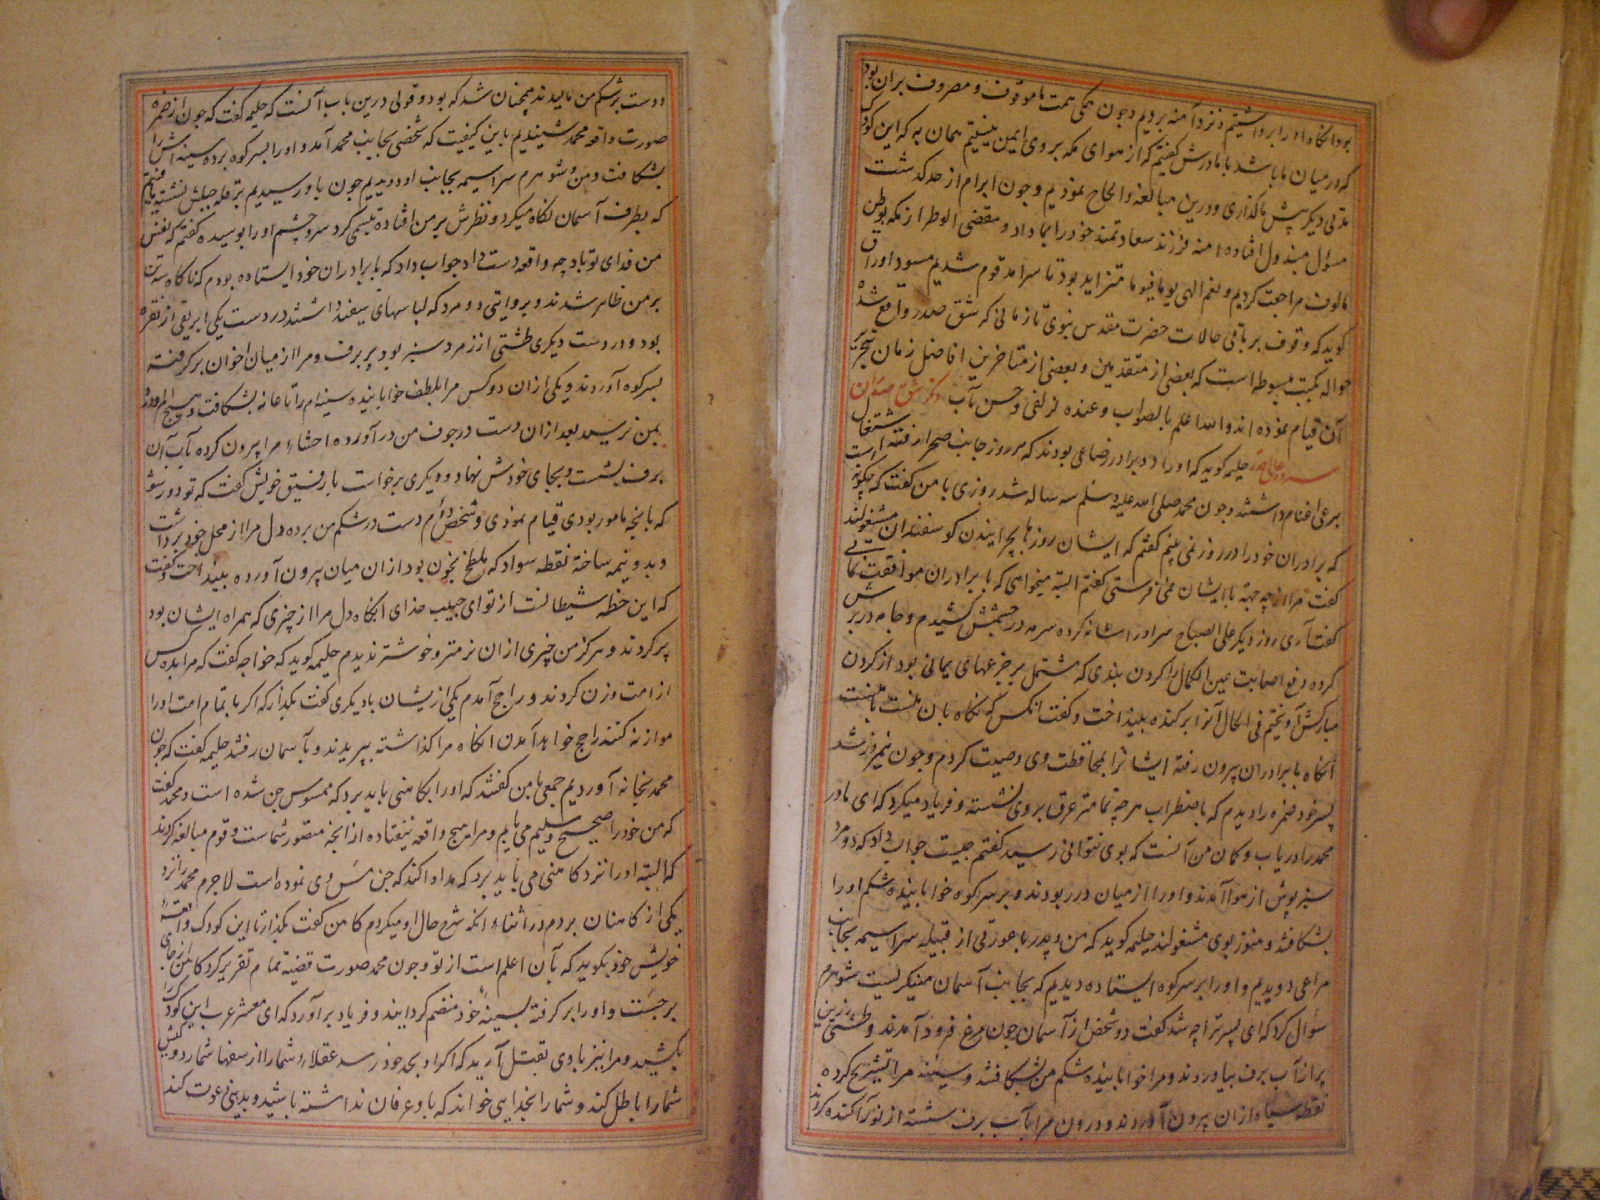 بود انکاه او را برداشتیم و نزد آمنه بردیم و چون همکی همت ما موقوف و مصروف بران بود
که در میان ما باشد با مادرش کفتیم که از هوای مکه بر وی ایمن نیستیم همان به که این کودک
مدتی دیکر پیش ما کذاری و درین مبالغه و الحاح نمودیم و چون ابرام از حد کذشت
مسؤل مبذول افتاده امنه فرزند سعادتمند خود را بما داد و مقضی الوطر از مکه بوطن
مالوف مراجعت کردیم و نعم الهی یوما فیوما متزاید بود تا سرامد قوم شدیم مسود اوراق
کوید که وقوف بر باقی حالات حضرت مقدس نبوی تا زمانی که شق صدر واقع شده
حواله بکتب مبسوطه است که بعضی از متقدمین و بعضی از متاخرین افاضل زمان
آن قیام نموده اند والله اعلم بالصواب و عنده لزلفی و حسن مآب ذکر شق صدر آن
حلیمه کوید که او را دو برادر رضاعی بودند که هر روز جانب صحرا رفته اشتغال
برعی اغنام داشتند و چون محمد صلی الله علیه و سلم سه ساله شد روزی با من کفت که چکونه است
که برادران خود را در روز نمی بینم کفتم که ایشان روزها بچرانیدن کوسفندان مشغولند
کفت مرا از چه جهة با ایشان نمی فرستی کفتم البته میخواهی که با برادران موافقت نمایی
کفت آری روز دیکر علی الصباح سر او را شانه کرده سرمه در چشمش کشیدم و جامه در برش
کرده دفع اصابت عین الکمال را کردن بندی که مشتمل بر جزعهای یمانی بود از کردن
مبارکش آویختم فی الحال آنرا برکنده بینداخت و کفت انکس که نکاه بان منست با منست
آنکاه با برادران بیرون رفته ایشانرا بمحافظت وی وصیت کردم و چون نیمروز شد
پسر خود ضمره را دیدم که باضطراب هر چه تمامتر عرق بر وی نشسته و فریاد میکرد که ای مادر
محمد را دریاب و کمان من آنست که بوی نتوانی رسید کفتم چیست جواب داد که دو مرد
سبز پوش از هوا آمدند و او را از میان در ربودند و بر سر کوه خوابانیده شکم او را
بشکافتند و هنوز بوی مشغولند حلیمه کوید که من و پدر با عورتی از قبیله سراسیمه بجانب
مراعی دویدیم و او را بر سر کوه ایستاده دیدیم که بجانب آسمان مینکریست شوهرم
سؤال کرد که ای پسر ترا چه شد کفت دو شخص از آسمان چون مرغ فرود آمدند و طشتی زرین
پر از آب برف بیاوردند و مرا خوابانیده شکم من بشکافتند و سینه مرا تشریح کرده
نقطه سیاه ازان بیرون آوردند و درون مرا بآب برف شسته از نور آکنده کردند
و دست بر شکم من مالیدند همچنان شد که بود و قولی درین باب آنست که حلیمه کفت که چون از ضمره
صورت واقعه محمد شنیدیم باین کیفیت که شخصی بجانب محمد آمد و او را بسر کوه برده سینه اش را
بشکافت و من و شوهرم سراسیمه بجانب او دویدیم چون باو رسیدیم بر قله جبلش نشسته یافتیم
که بطرف آسمان نکاه میکرد و نظرش بر من افتاده تبسمی کرد سر و چشم او را بوسیده کفتم که نفس
من فدای تو باد چه واقعه دست داد جواب داد که با برادران خود ایستاده بودم که ناکاه سه تن
بر من ظاهر شدند و بروایتی دو مرد که لباسهای سفید داشتند در دست یکی ابریقی از نقره
بود و در دست دیکری طشتی از زمرد سبز بود پر برف و مرا از میان اخوان بر کرفته
بسر کوه آوردند و یکی از ان دو کس مرا بلطف خوابانیده سینه ام را تا عانه بشکافت و هیچ الم و درد
بمن نرسید بعد ازان دست در جوف من در آورده احشاء مرا بیرون کرده بآب آن
برف بشست و بجای خودش نهاد و دیکری برخواست با رفیق خویش کفت که تو دور شو
که بانچه مامور بودی قیام نمودی و شخص دوم دست در شکم من برده دل مرا از محل خود برداشت
و بدو نیمه ساخته نقطه سواد که ملطخ بخون بود ازان میان بیرون آورده بینداخت و کفت
که این حظ شیطانست از تو ای حبیب خدای انکاه دل مرا از چیزی که همراه ایشان بود
پر کردند و هرکز من چیزی ازان نرمتر و خوشتر ندیدم حلیمه کوید که خواجه کفت که مرا بده کس
از امت وزن کردند و راجح آمدم یکی از یشان با دیکری کفت بکذار که اکر با تمام امت او را
موازنه کنند راجح خواهد آمدن انکاه مرا کذاشته بپریدند و بآسمان رفتند حلیمه کفت که چون
محمد بخانه آوردیم جمعی با من کفتند که او را بکاهنی باید برد که ممسوس جن شده است و محمد کفت
که من خود را صحیح و سلیم می یابم و مرا هیچ واقعه نیفتاده از آنچه متصور شماست و قوم مبالغه کردند
که البته او را نزد کاهنی می باید برد که مداوا کند که جن مس وی نموده است لاجرم محمد را نزد
یکی از کاهنان بردم در اثناء انکه شرح حال او میکردم کاهن کفت بکذار تا این کودک واقعه
خویش خود بکوید که بآن اعلم است از تو و چون محمد صورت قضیه تمام تقریر کرد کاهن از جای
بر جست و او را بر کرفته بسینه خود منضم کردانید و فریاد بر آورد که ای معشر عرب این کودک را
بکشید و مرا نیز با وی بقتل آرید که اکر او بحد خود رسد عقلاء شما را از سفها شمارد و کیش
شما را باطل کند و شما را بخدایی خواند که باو عرفان نداشته باشید و بدینی دعوت کند